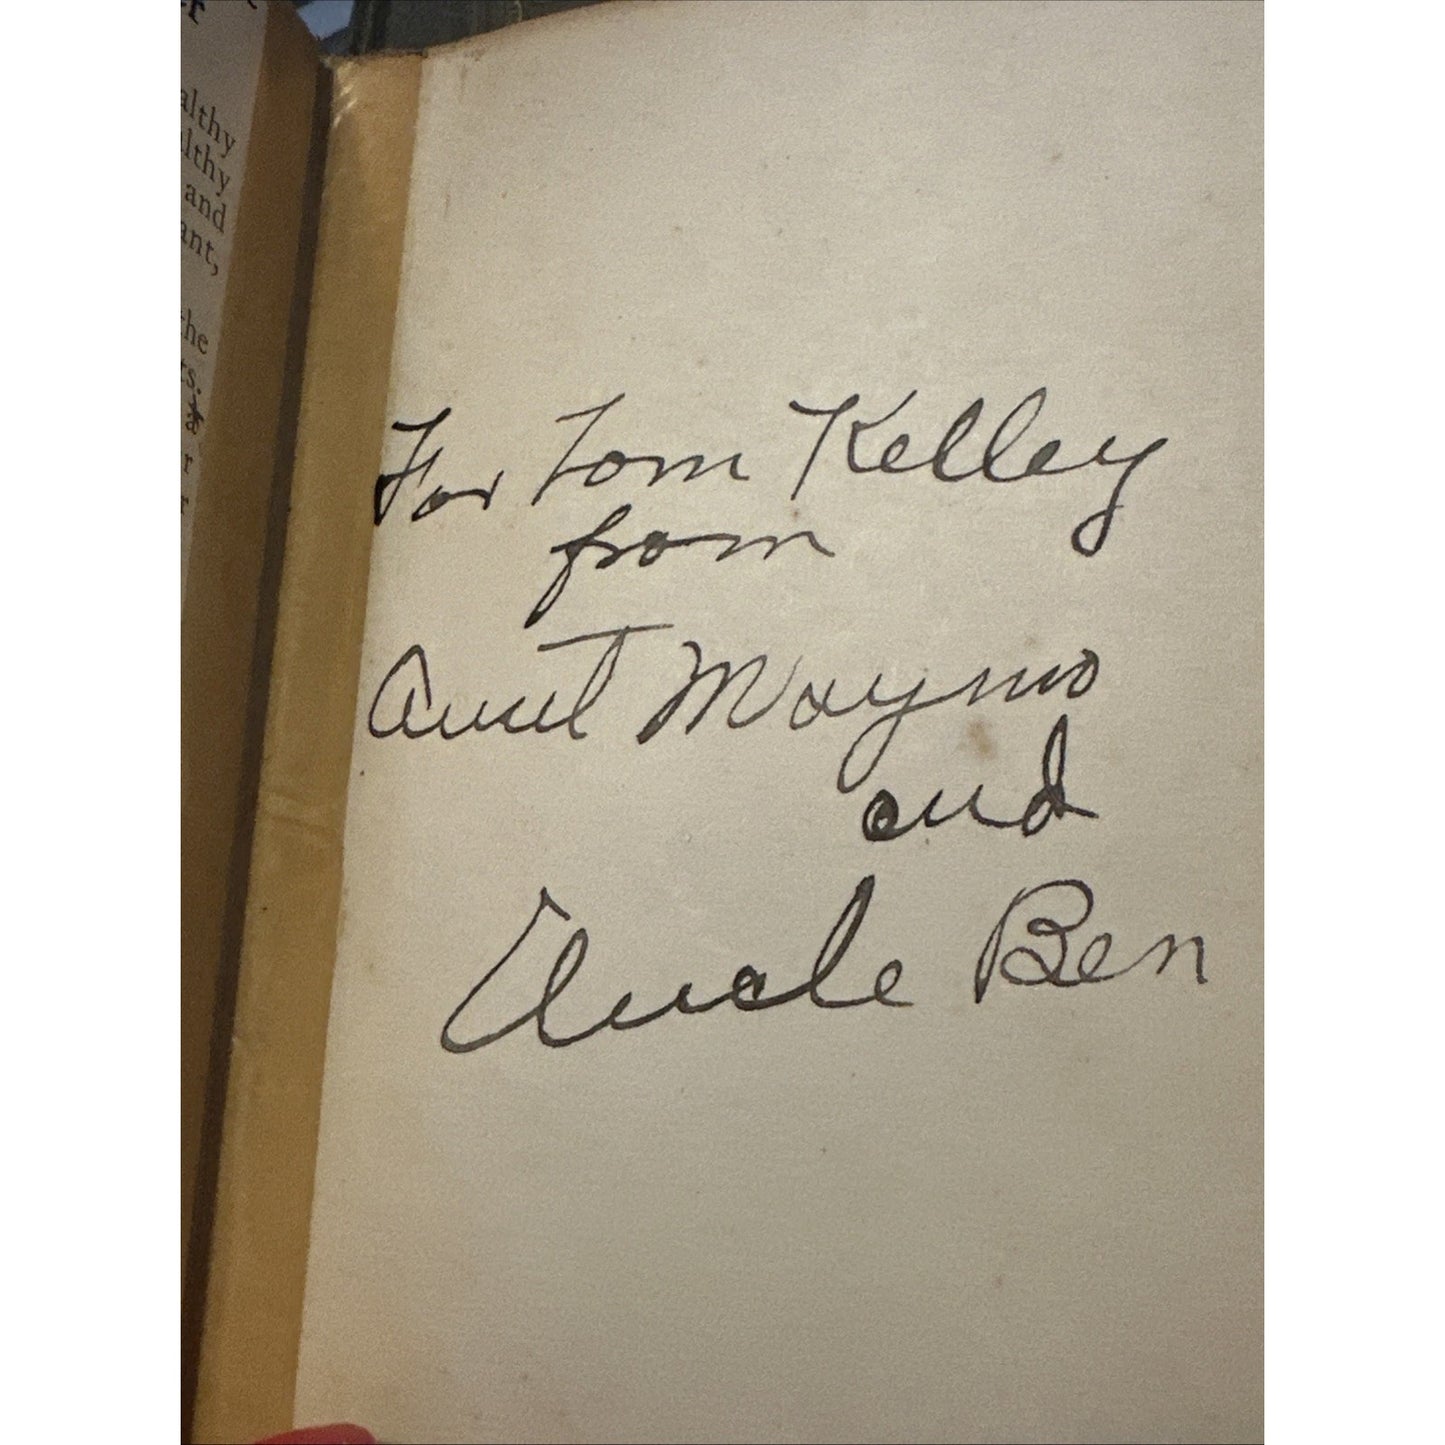 althy
lthy
and
ant,
the
ts.
a
r
r
For Tom Kelley
from
Aunt Maymo
and
Uncle Ben